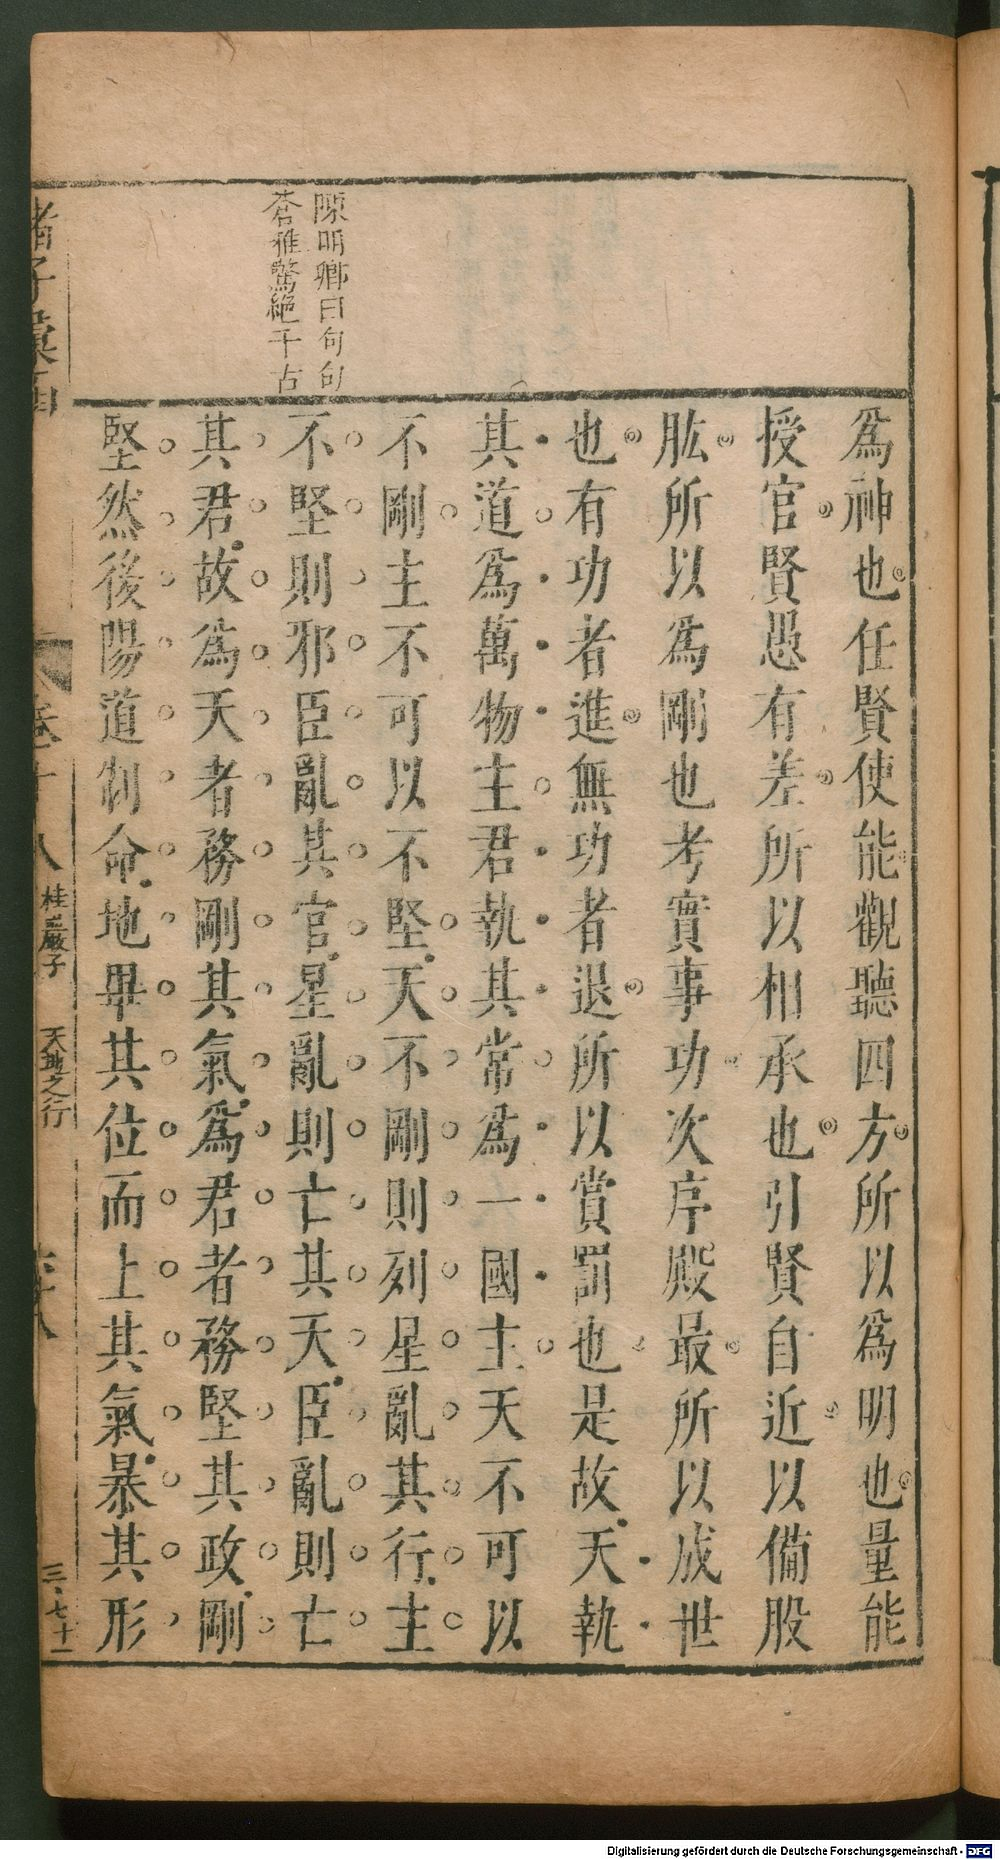 陳明卿曰句句
蒼雅驚絕千古
爲神也任賢使能觀聽四方所以爲明也量能
授官賢愚有差所以相承也引賢自近以備股
肱所以爲剛也考實事功次序殿最所以成世
也有功者進無功者退所以賞罰也是故天執
其道爲萬物主君執其常爲一國主天不可以
不剛主不可以不堅天不剛則列星亂其行主
不堅則邪臣亂其官星亂則亡其天臣亂則亡
其君故爲天者務剛其氣爲君者務堅其政剛
堅然後陽道制命地畢其位而上其氣暴其形
諸子彙函
卷十八
桂巖子
天地之行
六十八
三·七十一
Digitalisierung gefördert durch die Deutsche Forschungsgemeinschaft - DFG